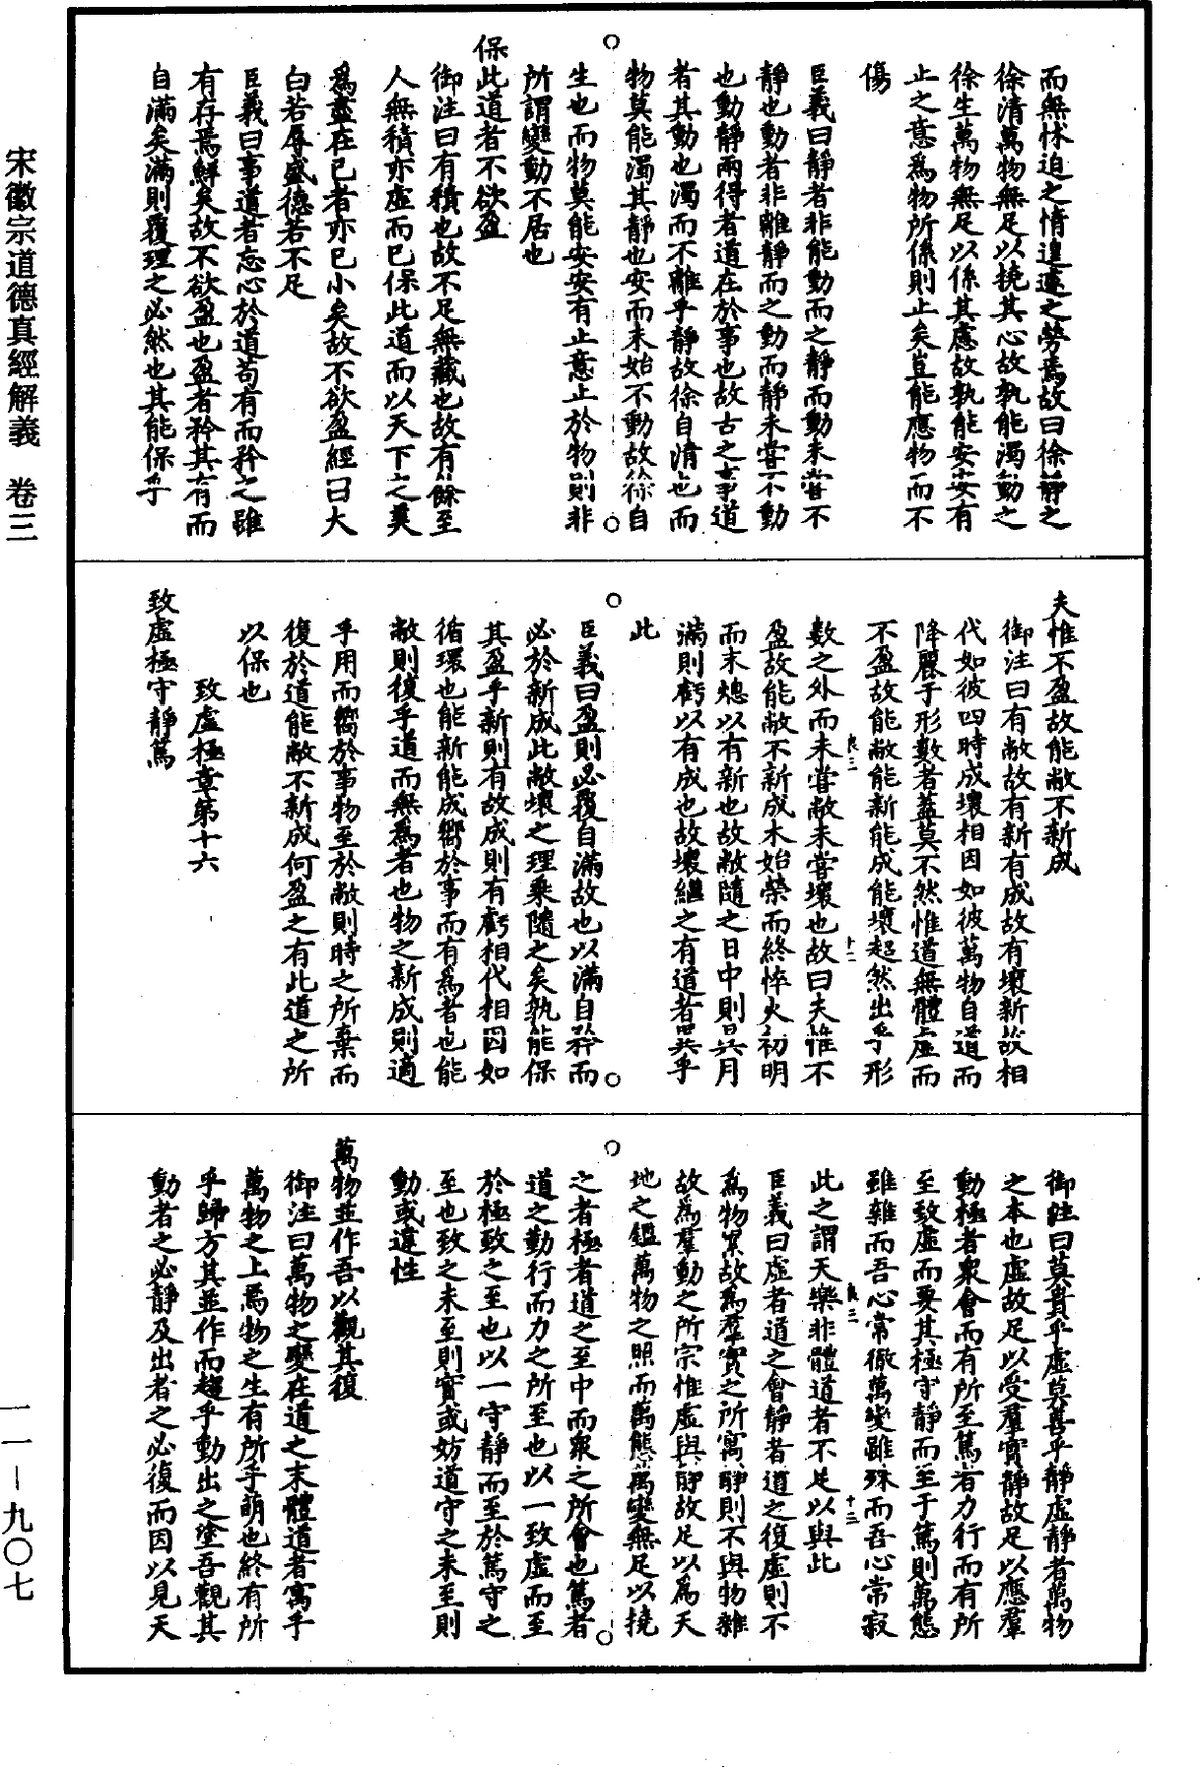 宋徽宗道德真經解義　卷三
而無怵迫之情遑遽之勞焉故曰徐靜之
徐清萬物無足以撓其心故孰能濁動之
徐生萬物無足以係其慮故孰能安安有
止之意為物所係則止矣豈能應物而不
傷
臣義曰靜者非能動而之靜而動未嘗不
靜也動者非離靜而之動而靜未嘗不動
也動靜兩得者道在於事也故古之事道
者其動也濁而不離乎靜故徐自清也而
物莫能濁其靜也安而未始不動故徐自
生也而物莫能安安有止意止於物則非
所謂變動不居也
保此道者不欲盈
御注曰有積也故不足無藏也故有餘至
人無積亦虛而已保此道而以天下之美
為盡在已者亦已小矣故不欲盈經曰大
白若辱盛德若不足
臣義曰事道者忘心於道苟有而矜之雖
有存焉鮮矣故不欲盈也盈者矜其有而
自滿矣滿則覆理之必然也其能保乎
夫惟不盈故能敝不新成
御注曰有敝故有新有成故有壞新故相
代如彼四時成壞相因如彼萬物自道而
降麗于形數者蓋莫不然惟道無體虛而
不盈故能敝能新能成能壞超然出乎形
數之外而未嘗敝未嘗壞也故曰夫惟不
盈故能敝不新成木始榮而終悴火初明
而末熄以有新也故敝隨之日中則昃月
滿則虧以有成也故壞繼之有道者異乎
此
臣義曰盈則必覆自滿故也以滿自矜而
必於新成此敝壞之理乘隨之矣孰能保
其盈乎新則有故成則有虧相代相因如
循環也能新能成嚮於事而有為者也能
敝則復乎道而無為者也物之新成則適
乎用而嚮於事物至於敝則時之所棄而
復於道能敝不新成何盈之有此道之所
以保也
致虛極章第十六
致虛極守靜篤
御注曰莫貴乎虛莫善乎靜虛靜者萬物
之本也虛故足以受羣實靜故足以應羣
動極者衆會而有所至篤者力行而有所
至致虛而要其極守靜而至于篤則萬態
雖雜而吾心常徹萬變雖殊而吾心常寂
此之謂天樂非體道者不足以與此
臣義曰虛者道之會靜者道之復虛則不
為物累故為羣實之所寓靜則不與物雜
故為羣動之所宗惟虛與靜故足以為天
地之鑑萬物之照而萬態萬變無足以撓
之者極者道之至中而衆之所會也篤者
道之勤行而力之所至也以一致虛而至
於極致之至也以一守靜而至於篤守之
至也致之未至則實或妨道守之未至則
動或違性
萬物並作吾以觀其復
御注曰萬物之變在道之末體道者寓乎
萬物之上焉物之生有所乎萌也終有所
乎歸方其並作而趨乎動出之塗吾觀其
動者之必靜及出者之必復而因以見天
一一－九〇七